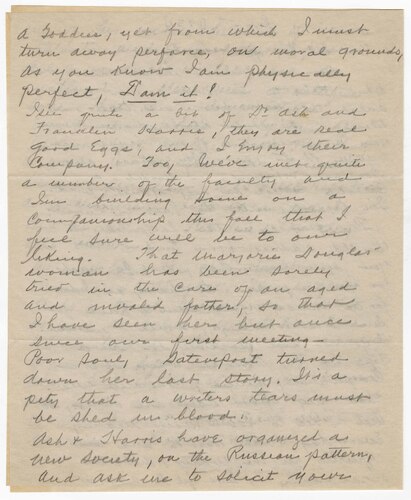 a Goddess, yet from which I must
turn away perforce, on moral grounds,
As you know I am physically
perfect, Damit!
I see quite a bit of Dr. Ash and
Franklin Harris, they are real
Good Eggs, and I Enjoy their
Company. Too, We've met quite
a number of the faculty and
I'm building some on a
Companionship this fall that I
feel sure will be to our
liking. That Marjorie Douglas
woman has been sorely
tried in the care of an aged
and invalid father, so that
I have seen her but once
since our first meeting—
Poor soul, Satevepost turned
down her last story. It's a
pity that a writers tears must
be shed in blood.
Ash & Harris have organized a
new Society, on the Russian pattern,
and ask me to solicit your